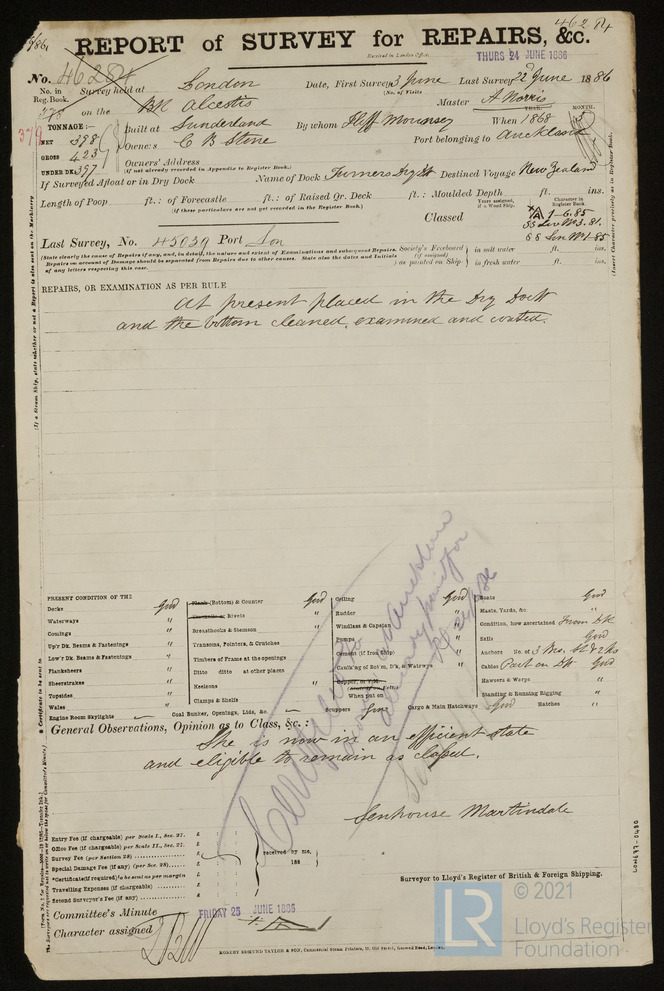 46284
REPORT of SURVEY for REPAIRS, &c.
Received in London Office,
THURS 24 JUNE 1886
No. 46284
No. in Reg. Book. Survey held at London Date, First Survey 3 June Last Survey 22 June 1886
(No. of Visits
on the Bk Alcestis Master A Norris
379
TONNAGE:— Built at Sunderland By whom Iliff Mounsey When 1868
YEAR. MONTH.
NETT 398 Owners C B Stone Port belonging to Auckland
GROSS 423 Owners' Address
UNDER DK. 397 (if not already recorded in Appendix to Register Book.)
If Surveyed Afloat or in Dry Dock Name of Dock Turners Dry Dk Destined Voyage New Zealand
Length of Poop ft.: of Forecastle ft.: of Raised Qr. Deck ft.: Moulded Depth ft. ins.
(if these particulars are not yet recorded in the Register Book.)
Classed
Years assigned, if a Wood Ship.
Character in Register Book
A 1-6.85
SS Lon No3.81.
Last Survey, No. 45039 Port Lon
(State clearly the cause of Repairs if any, and, in detail, the nature and extent of Examinations and subsequent Repairs.
Repairs on account of Damage should be separated from Repairs due to other causes. State also the dates and Initials
of any letters respecting this case.
Society's Freeboard (if assigned) as painted on Ship:
in salt water ft. ins.
in fresh water ft. ins.
REPAIRS, OR EXAMINATION AS PER RULE
At present placed in the Dry Dock
and the bottom cleaned, examined and coated.
PRESENT CONDITION OF THE
Decks Good
Waterways "
Comings "
Up'r Dk. Beams & Fastenings "
Low'r Dk. Beams & Fastenings "
Planksheers "
Sheerstrakes "
Topsides "
Wales "
Engine Room Skylights
Plank (Bottom) & Counter Good
Rivets "
Breasthooks & Stemson "
Transoms, Pointers, & Crutches "
Timbers of Frame at the openings "
Ditto ditto at other places "
Keelsons "
Clamps & Shells "
Coal Bunker, Openings, Lids, &c. "
Ceiling Good
Rudder "
Windlass & Capstan "
Pumps "
Cement (if Iron Ship) "
Caulk'ng of Bot'm, D'k, & Watrw'ys "
Copper, or Y.M.
When put on
Scuppers Good
Cargo & Main Hatchways Good
Boats Good
Masts, Yards, &c. "
Condition, how ascertained From Dk
Sails Good
Anchors No. of
Cables Part on Dk Good
Hawsers & Warps "
Standing & Running Rigging "
Hatches "
General Observations, Opinion as to Class, &c.:
She is now in an efficient state
and eligible to remain as classed.
Senhouse Martindale
Surveyor to Lloyd's Register of British & Foreign Shipping.
Entry Fee (if chargeable) per Scale I., Sec. 27. £
Office Fee (if chargeable) per Scale II., Sec. 27. £
Survey Fee (per Section 28) £
Special Damage Fee (if any) (per Sec. 28) £
*Certificate (if required) to be sent as per margin £
Travelling Expenses (if chargeable) £
Second Surveyor's Fee (if any) £
received by me,
188
Committee's Minute FRIDAY 25 JUNE 1886
Character assigned
ROBERT EDMUND TAYLOR & SON, Commercial Steam Printers, 19, Old Street, Goswell Road, London.
LON677-0430
LR
© 2021
Lloyd's Register
Foundation